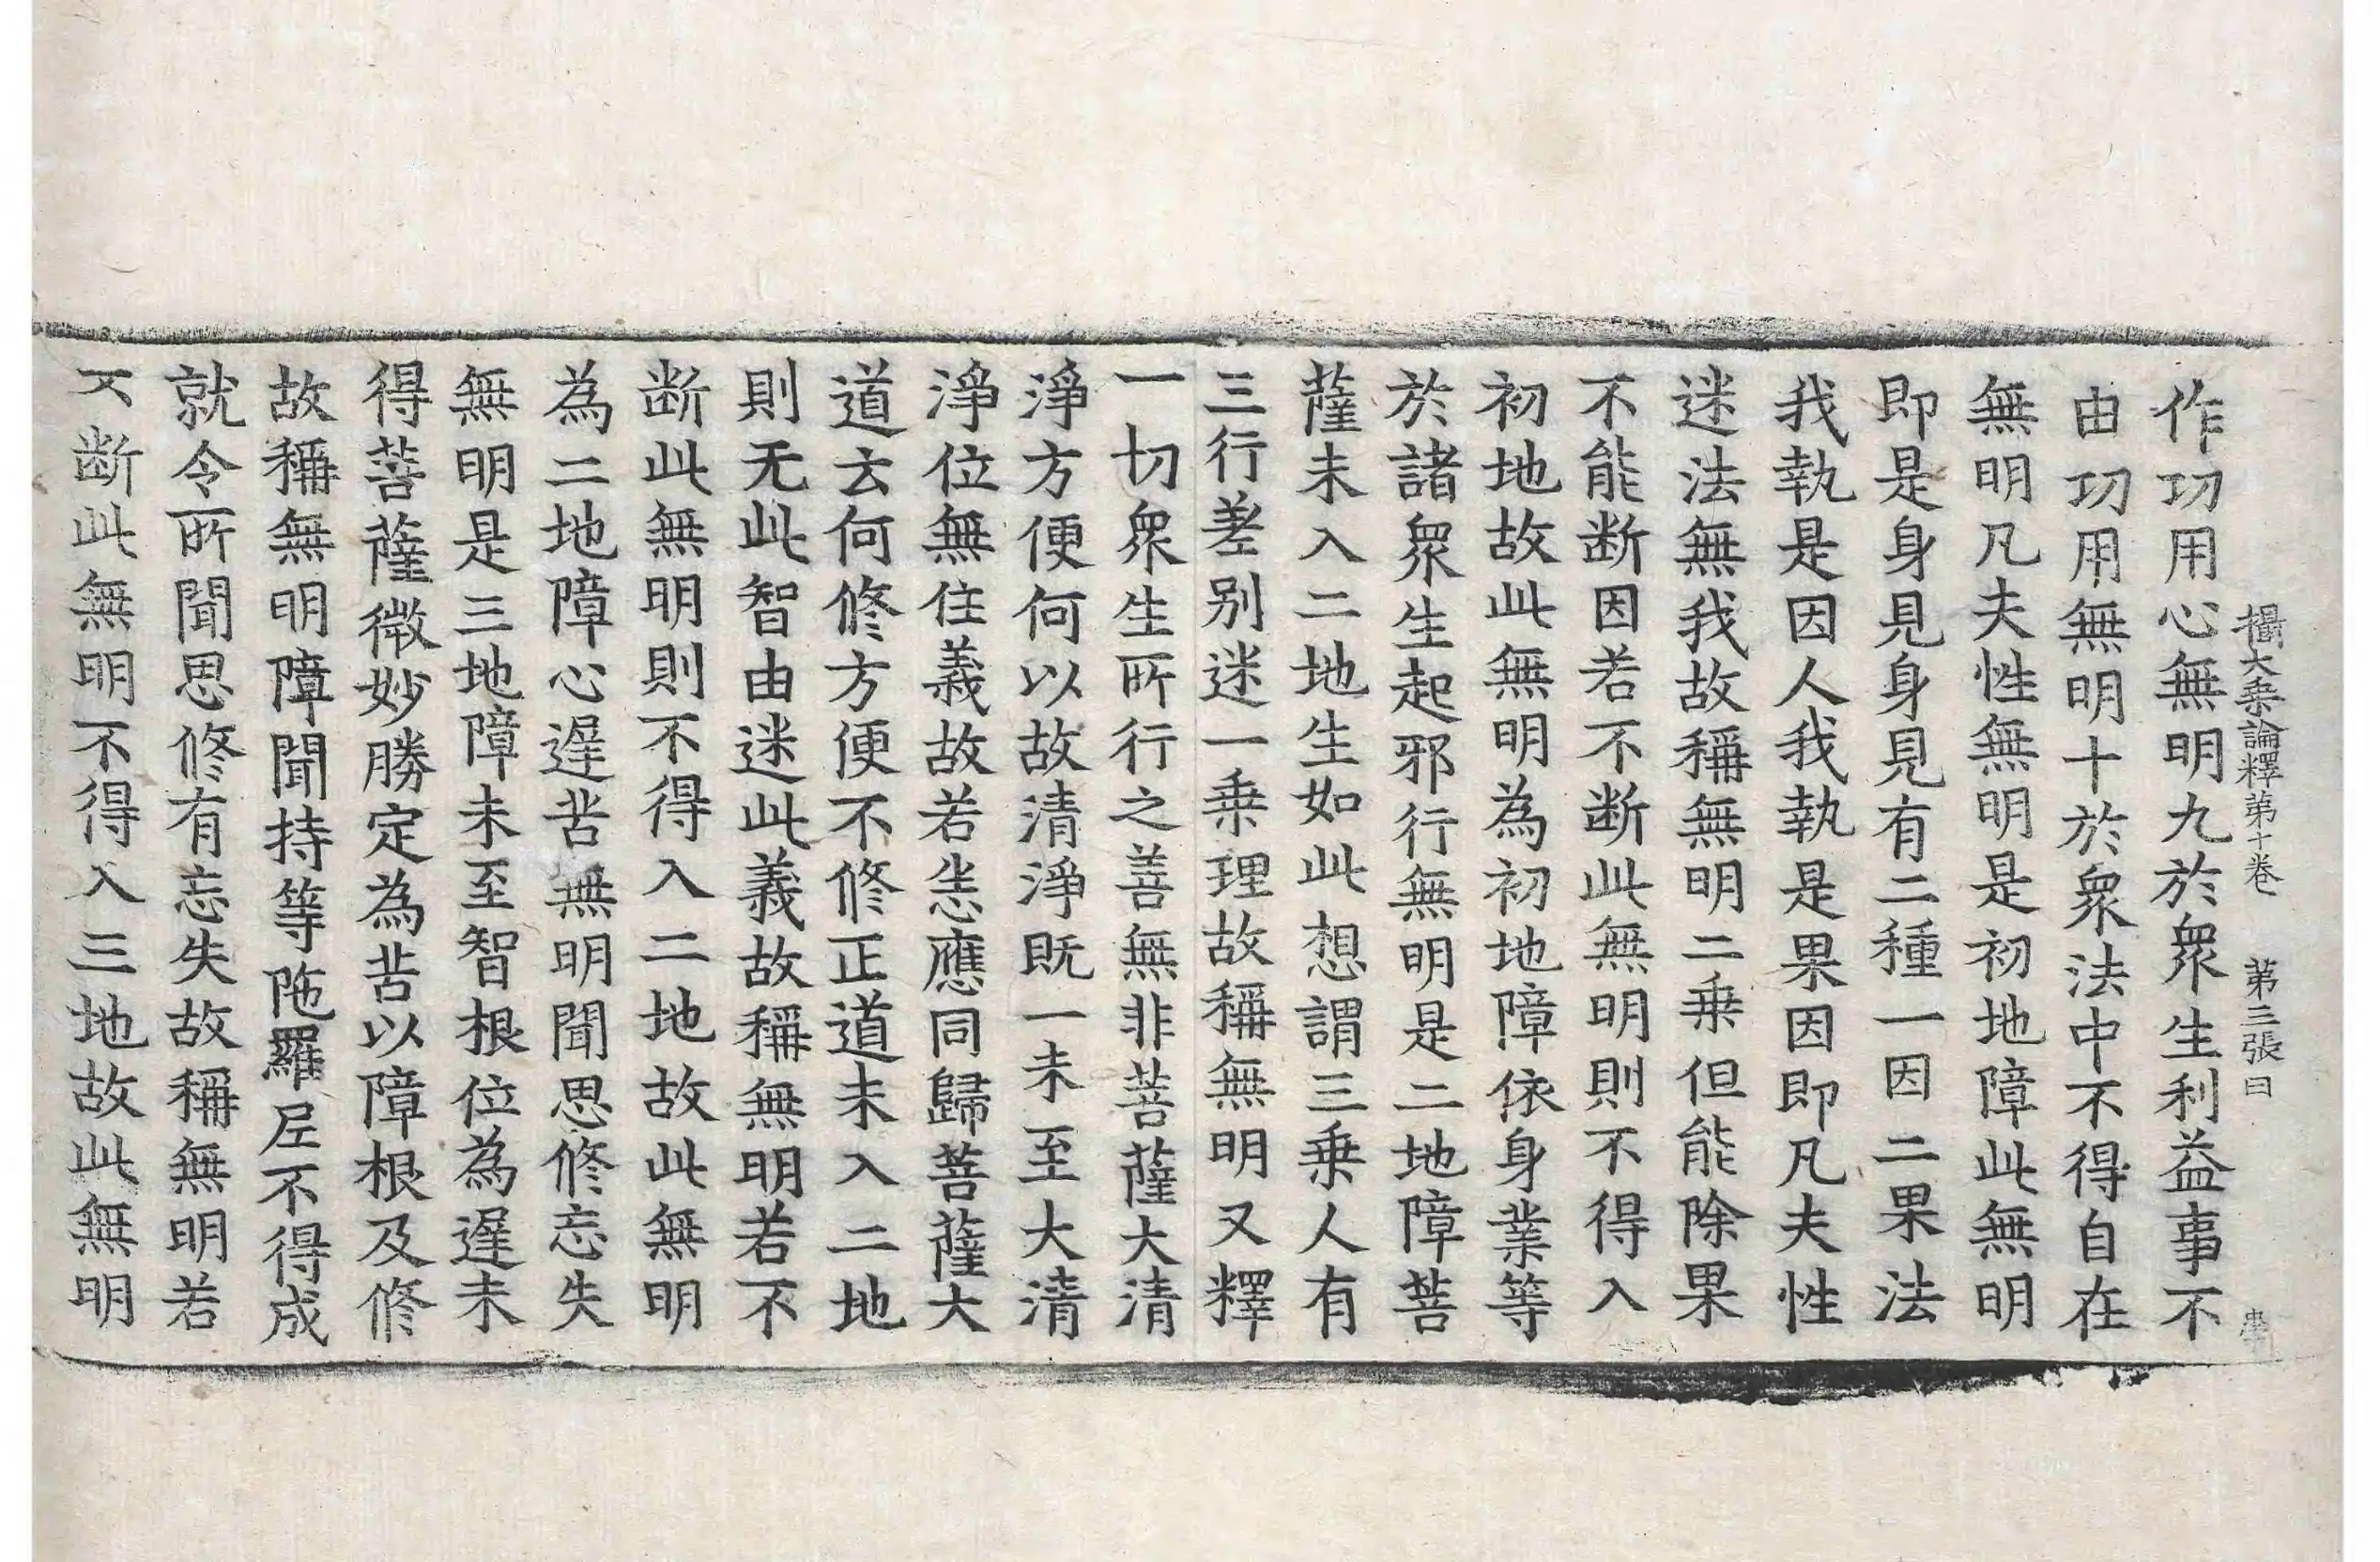 攝大乘論釋第十卷 第三張 曰
作功用心無明九於衆生利益事不
由功用無明十於衆法中不得自在
無明凡夫性無明是初地障此無明
即是身見身見有二種一因二果法
我執是因人我執是果因即凡夫性
迷法無我故稱無明二乘但能除果
不能断因若不断此無明則不得入
初地故此無明為初地障依身業等
於諸衆生起邪行無明是二地障菩
薩未入二地生如此想謂三乘人有
三行差别迷一乘理故稱無明又釋
一切衆生所行之善無非菩薩大清
淨方便何以故清淨既一未至大清
淨位無住義故若恙應同歸菩薩大
道云何修方便不修正道未入二地
則无此智由迷此義故稱無明若不
断此無明則不得入二地故此無明
為二地障心遲苦無明聞思修忘失
無明是三地障未至智根位為遲未
得菩薩微妙勝定為苦以障根及修
故稱無明障聞持等陁羅尼不得成
就令所聞思修有忘失故稱無明若
不断此無明不得入三地故此無明